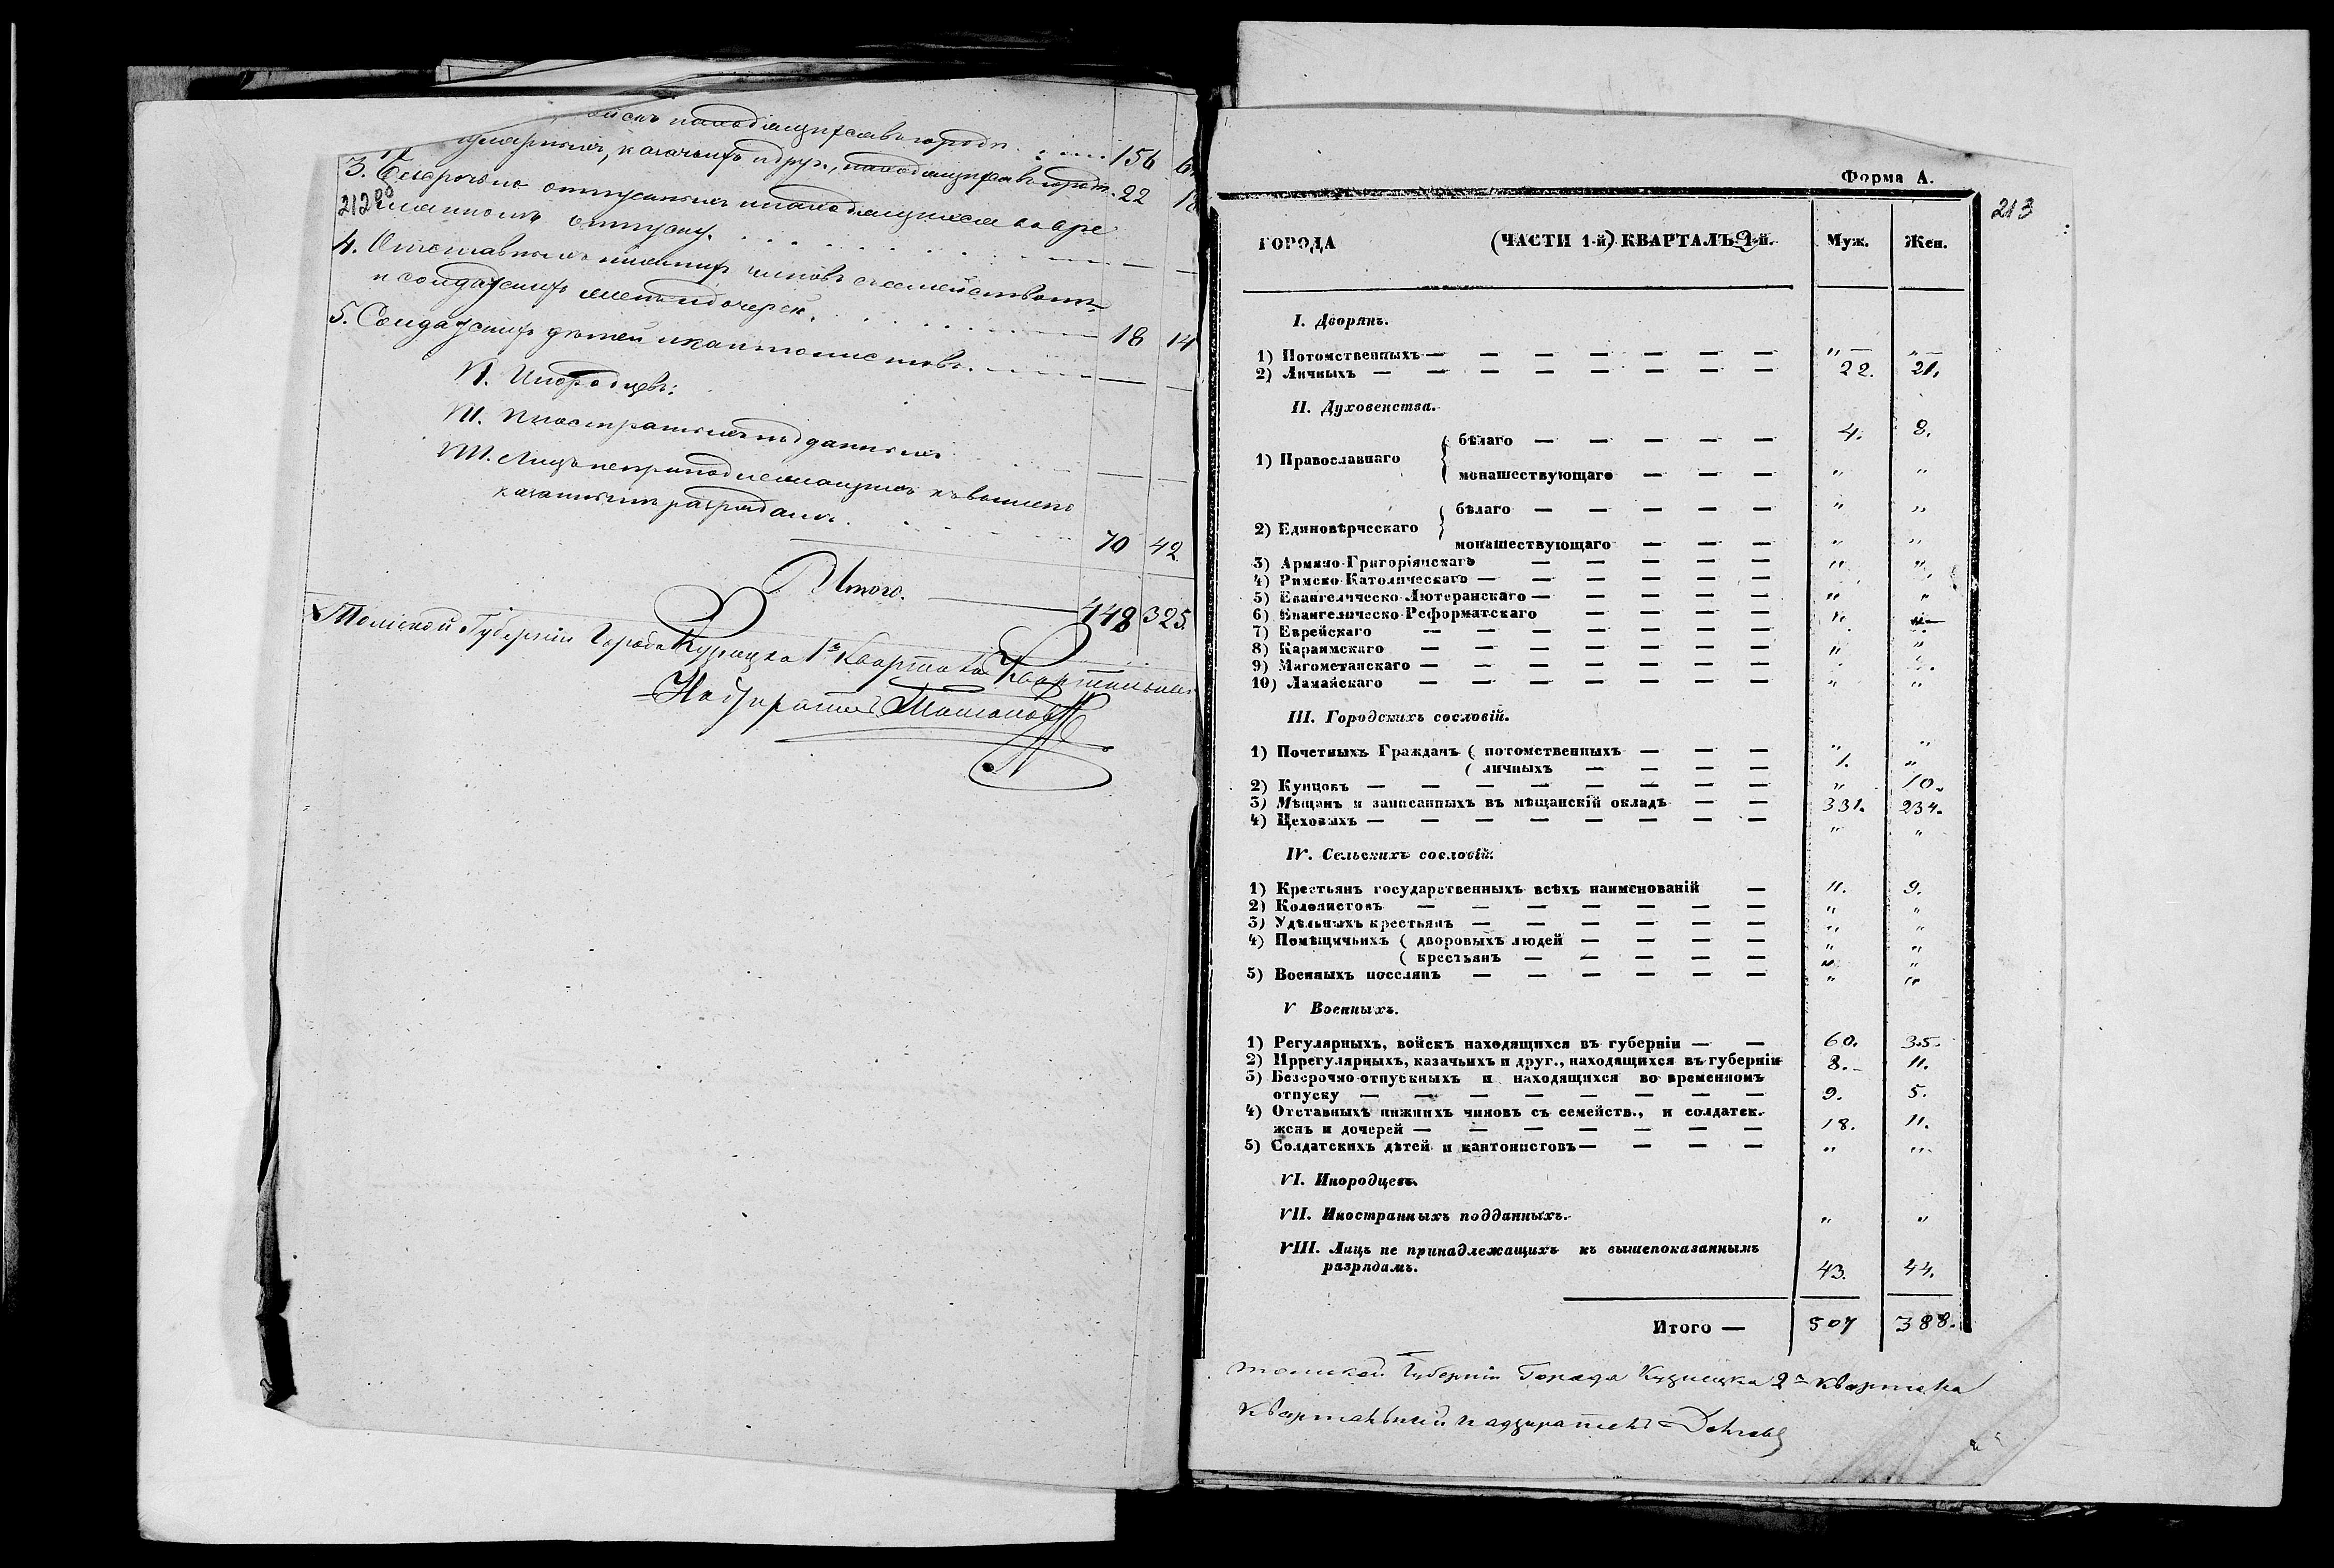 находящихся въ городѣ. 156
казачьихъ и друг., находящихся въ городѣ. 22
3. Безсрочно отпускныхъ и находящихся во вре
212об
менномъ отпуску.
4. Отставныхъ нижнихъ чиновъ съ семействомъ
и солдатскихъ женъ и дочерей. 18 14
5. Солдатскихъ дѣтей и кантонистовъ.
VI. Инородцевъ:
VII. Иностранныхъ подданныхъ
VIII. Лицъ не принадлежащихъ къ вышепо
казаннымъ разрядамъ. 70 42.
Итого. 448 325.
Томской Губерніи Города Кузнецка 1го Квартала Квартальный
Надзиратель
Форма А.
213
ГОРОДА (ЧАСТИ 1-й) КВАРТАЛЪ 2-й. Муж. Жен.
I. Дворянъ.
1) Потомственныхъ — — — — — — — „ — „ —
2) Личныхъ — — — — — — — — 22. 21.
II. Духовенства.
1) Православнаго { бѣлаго — — — — — 4. 8.
монашествующаго — — — „ „
2) Единовѣрческаго { бѣлаго — — — — — „ „
монашествующаго — — — „ „
3) Армяно-Григоріянскаго — — — — — „ „
4) Римско-Католическаго — — — — — — „ „
5) Евангелическо-Лютеранскаго — — — — — „ „
6) Евангелическо-Реформатскаго — — — — „ „
7) Еврейскаго — — — — — — — „ „
8) Караимскаго — — — — — — — „ „
9) Магометанскаго — — — — — — — „ „
10) Ламайскаго — — — — — — — „ „
III. Городскихъ сословій.
1) Почетныхъ Гражданъ ( потомственныхъ — — — „ „
( личныхъ — — — — 1. „
2) Купцовъ — — — — — — — — „ 10.
3) Мѣщанъ и записанныхъ въ мѣщанскій окладъ — — 331. 234.
4) Цеховыхъ — — — — — — — — „ „
IV. Сельскихъ сословій.
1) Крестьянъ государственныхъ всѣхъ наименованій — 11. 9.
2) Колонистовъ — — — — — — — „ „
3) Удѣльныхъ крестьянъ — — — — — — „ „
4) Помѣщичьихъ ( дворовыхъ людей — — — — „ „
( крестьянъ — — — — — „ „
5) Военныхъ поселянъ — — — — — — „ „
V Военныхъ.
1) Регулярныхъ, войскъ находящихся въ губерніи — — 60. 35.
2) Иррегулярныхъ, казачьихъ и друг., находящихся въ губерніи 8. 11.
3) Безсрочно-отпускныхъ и находящихся во временномъ
отпуску — — — — — — — — 9. 5.
4) Отставныхъ нижнихъ чиновъ съ семейств., и солдатск.
женъ и дочерей — — — — — — — 18. 11.
5) Солдатскихъ дѣтей и кантонистовъ — — — — „ „
VI. Инородцевъ.
VII. Иностранныхъ подданныхъ. „ „
VIII. Лицъ не принадлежащихъ къ вышепоказаннымъ
разрядамъ. 43. 44.
Итого — 507 388.
Томской Губерніи Города Кузнецка 2го Квартала
Квартальный надзиратель